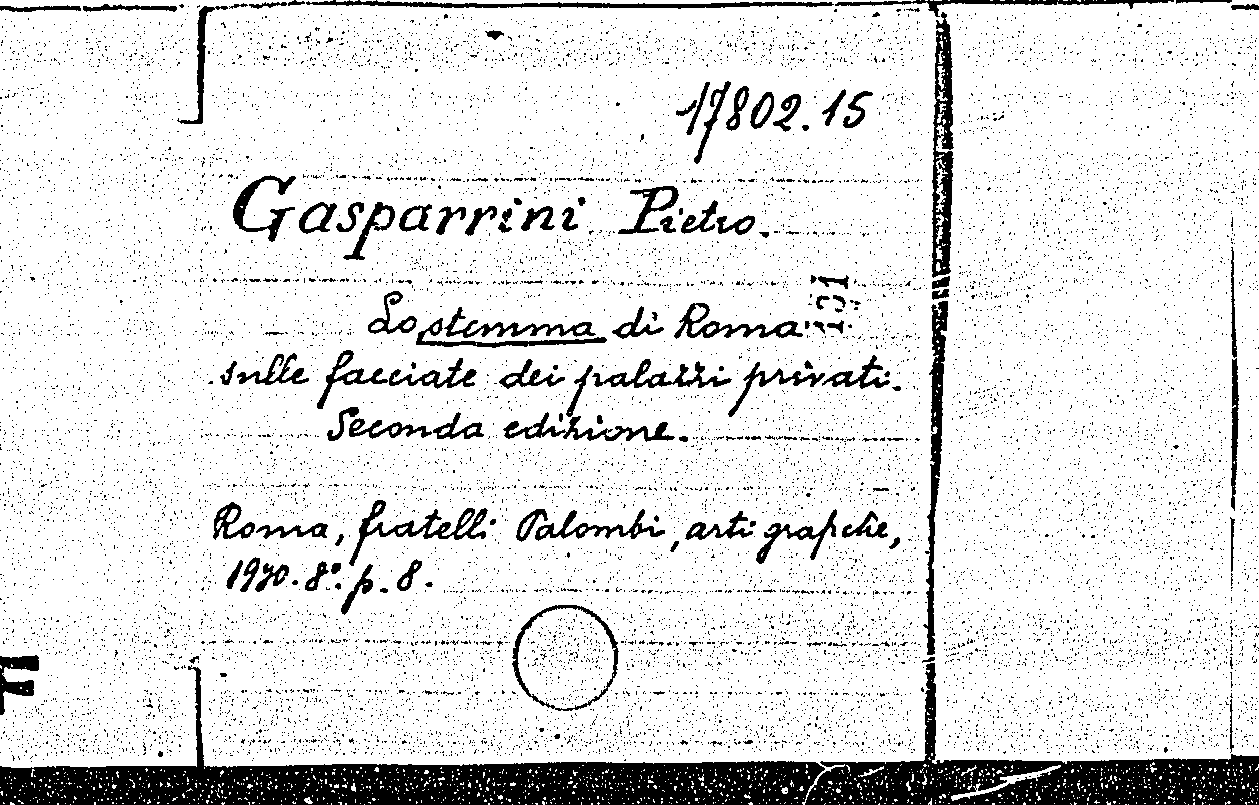 17802.15
Gasparrini Pietro.
Lo stemma di Roma
sulle facciate dei palazzi privati.
Seconda edizione.
Roma, fratelli Palombi, arti grafiche,
1930. 8º. p. 8.
F